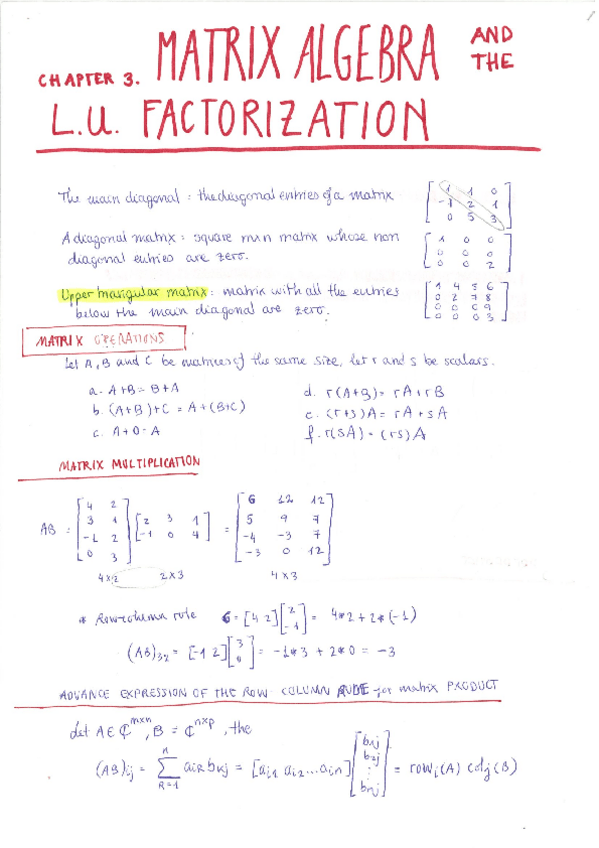 CHAPTER 3. MATRIX ALGEBRA AND THE
L.U. FACTORIZATION
The main diagonal : the diagonal entries of a matrix [1 1 0
-1 2 1
0 5 3]
A diagonal matrix : square mxn matrix whose non [1 0 0
diagonal entries are zero. 0 0 0
0 0 2]
Upper triangular matrix : matrix with all the entries [1 4 5 6
below the main diagonal are zero. 0 2 7 8
0 0 6 9
0 0 0 3]
MATRIX OPERATIONS
Let A, B and C be matrices of the same size, let r and s be scalars.
a. A+B = B+A d. r(A+B) = rA + rB
b. (A+B)+C = A+(B+C) e. (r+s)A = rA + sA
c. A+0 = A f. r(sA) = (rs)A
MATRIX MULTIPLICATION
AB = [4 2
3 1
-1 2
0 3] [2 3 1
-1 0 4] = [6 12 12
5 9 7
-4 -3 7
-3 0 12]
4x2 2x3 4x3
* Row-column rule 6 = [4 2][2
-1] = 4*2+2*(-1)
(AB)32 = [-1 2][3
0] = -1*3 + 2*0 = -3
ADVANCE EXPRESSION OF THE ROW COLUMN RULE for matrix PRODUCT
Let A ∈ ℂ^mxn, B = ℂ^nxp, the
(AB)ij = n∑k=1 aik bkj = [ai1 ai2 ... ain] [b1j
b2j
⋮
bnj] = rowi(A) colj(B)